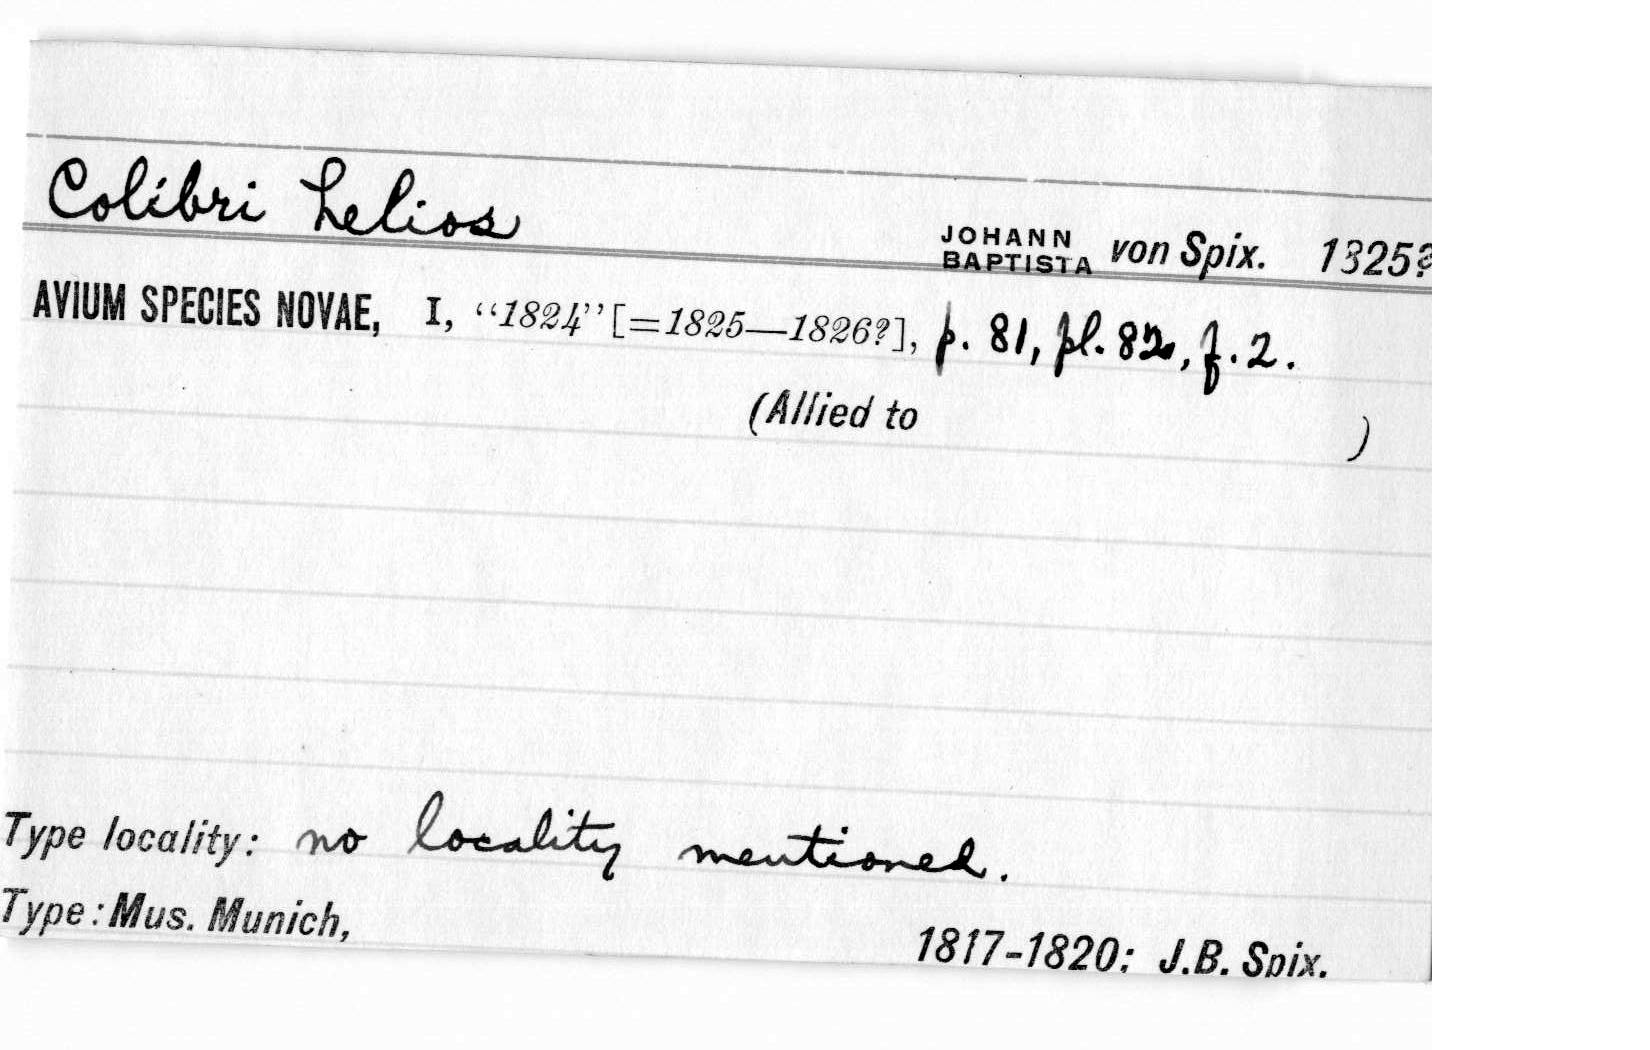 Colibri helios
JOHANN BAPTISTA von Spix. 1825?
AVIUM SPECIES NOVAE, I, "1824" [=1825—1826?], p. 81, pl. 82, f. 2.
(Allied to )
Type locality: no locality mentioned.
Type: Mus. Munich, 1817-1820; J.B. Spix.